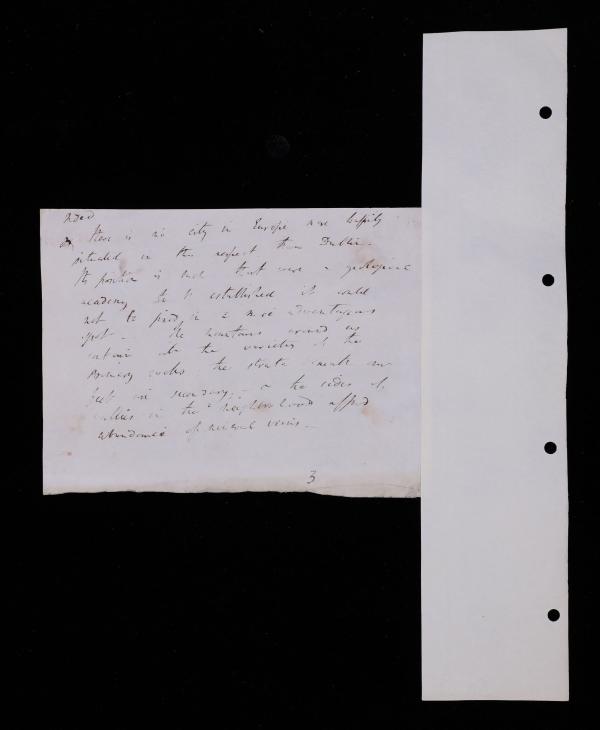 There is no city in Europe more happily
situated in this respect than Dublin.
Its position is such that were a geological
academy to be established it could
not be placed in a more advantageous
spot - The mountains around us
contain all the varieties of the
Primary rocks; the strata beneath our
feet are secondary; - & the sides of
vallies in the neighbourhood afford
abundance of mineral veins. -
3